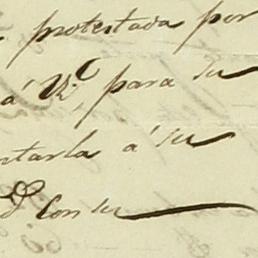 protestada por
á V. para su
ntarla á su
D. Con su